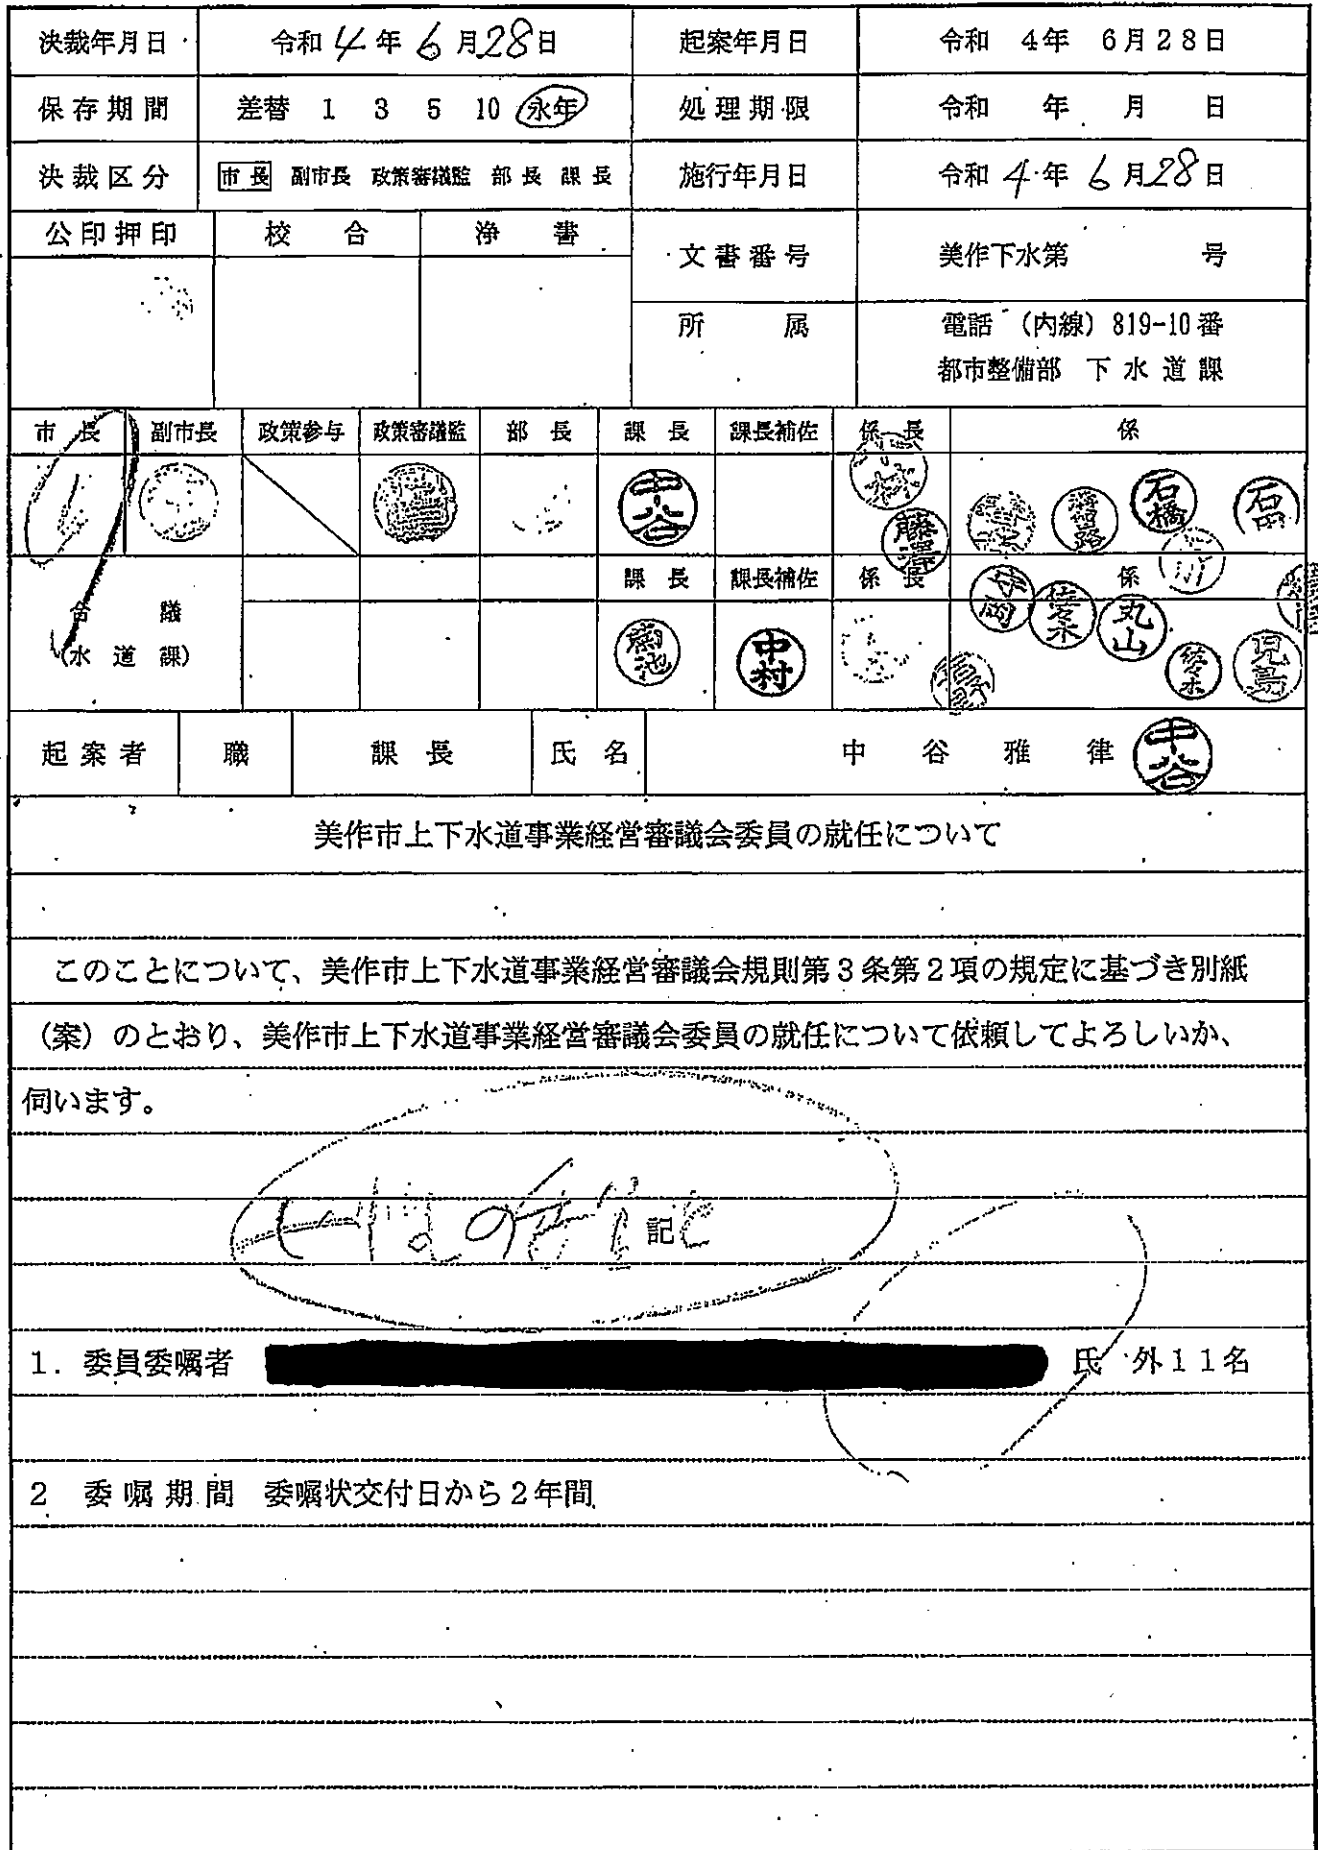 決裁年月日 令和4年6月28日 起案年月日 令和 4年 6月28日
保存期間 差替 1 3 5 10 永年 処理期限 令和 年 月 日
決裁区分 市長 副市長 政策審議監 部長 課長 施行年月日 令和4年6月28日
公印押印 校合 浄書 文書番号 美作下水第 号
所属 電話 (内線) 819-10番
都市整備部 下水道課
市長 副市長 政策参与 政策審議監 部長 課長 課長補佐 係長 係
中谷 藤澤 石橋
課長 課長補佐 係長 係
合議
(水道課)
菊池 中村 佐々木 丸山 佐々木 児島
起案者 職 課長 氏名 中谷雅律 中谷
美作市上下水道事業経営審議会委員の就任について
このことについて、美作市上下水道事業経営審議会規則第3条第2項の規定に基づき別紙
(案)のとおり、美作市上下水道事業経営審議会委員の就任について依頼してよろしいか、
伺います。
記
1. 委員委嘱者 氏 外11名
2 委嘱期間 委嘱状交付日から2年間